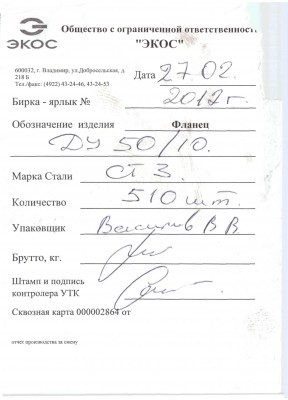 ЭКОС
Общество с ограниченной ответственност
"ЭКОС"
600032, г. Владимир, ул.Добросельская, д.
218 Б
Тел./факс: (4922) 43-24-46, 43-24-53
Дата 27.02.
Бирка - ярлык № 2012г.
Обозначение изделия Фланец
Ду 50/10.
Марка Стали Ст 3.
Количество 510 шт.
Упаковщик В.В.
Брутто, кг.
Штамп и подпись
контролера УТК
Сквозная карта 000002864 от
отчет производства за смену